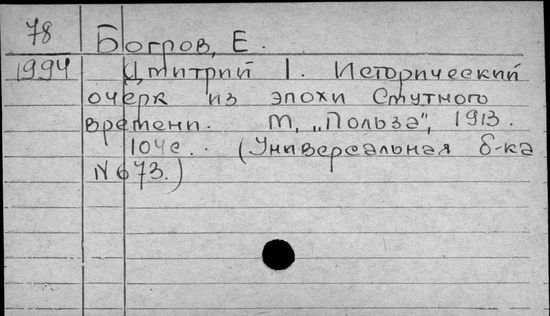 78 Богров, Е.
1994 Дмитрий I. Исторический
очерк из эпохи Смутного
времени. М, „Польза", 1913.
104с. (Универсальная б-ка
N 673.)